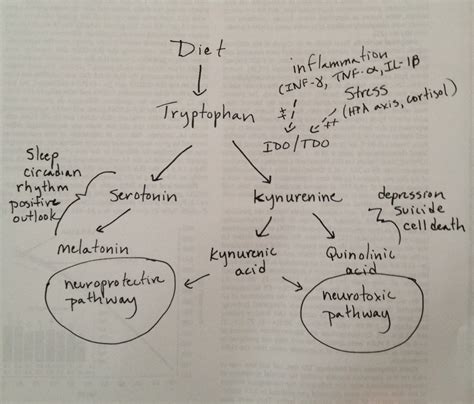 Diet
inflammation
(INF-γ, TNF-α, IL-1β
Stress
(HPA axis, cortisol)
Tryptophan
+
++
IDO/TDO
Sleep
circadian
rhythm
positive
outlook
Serotonin
Kynurenine
depression
suicide
cell death
Melatonin
Kynurenic
acid
Quinolinic
acid
neuroprotective
pathway
neurotoxic
pathway